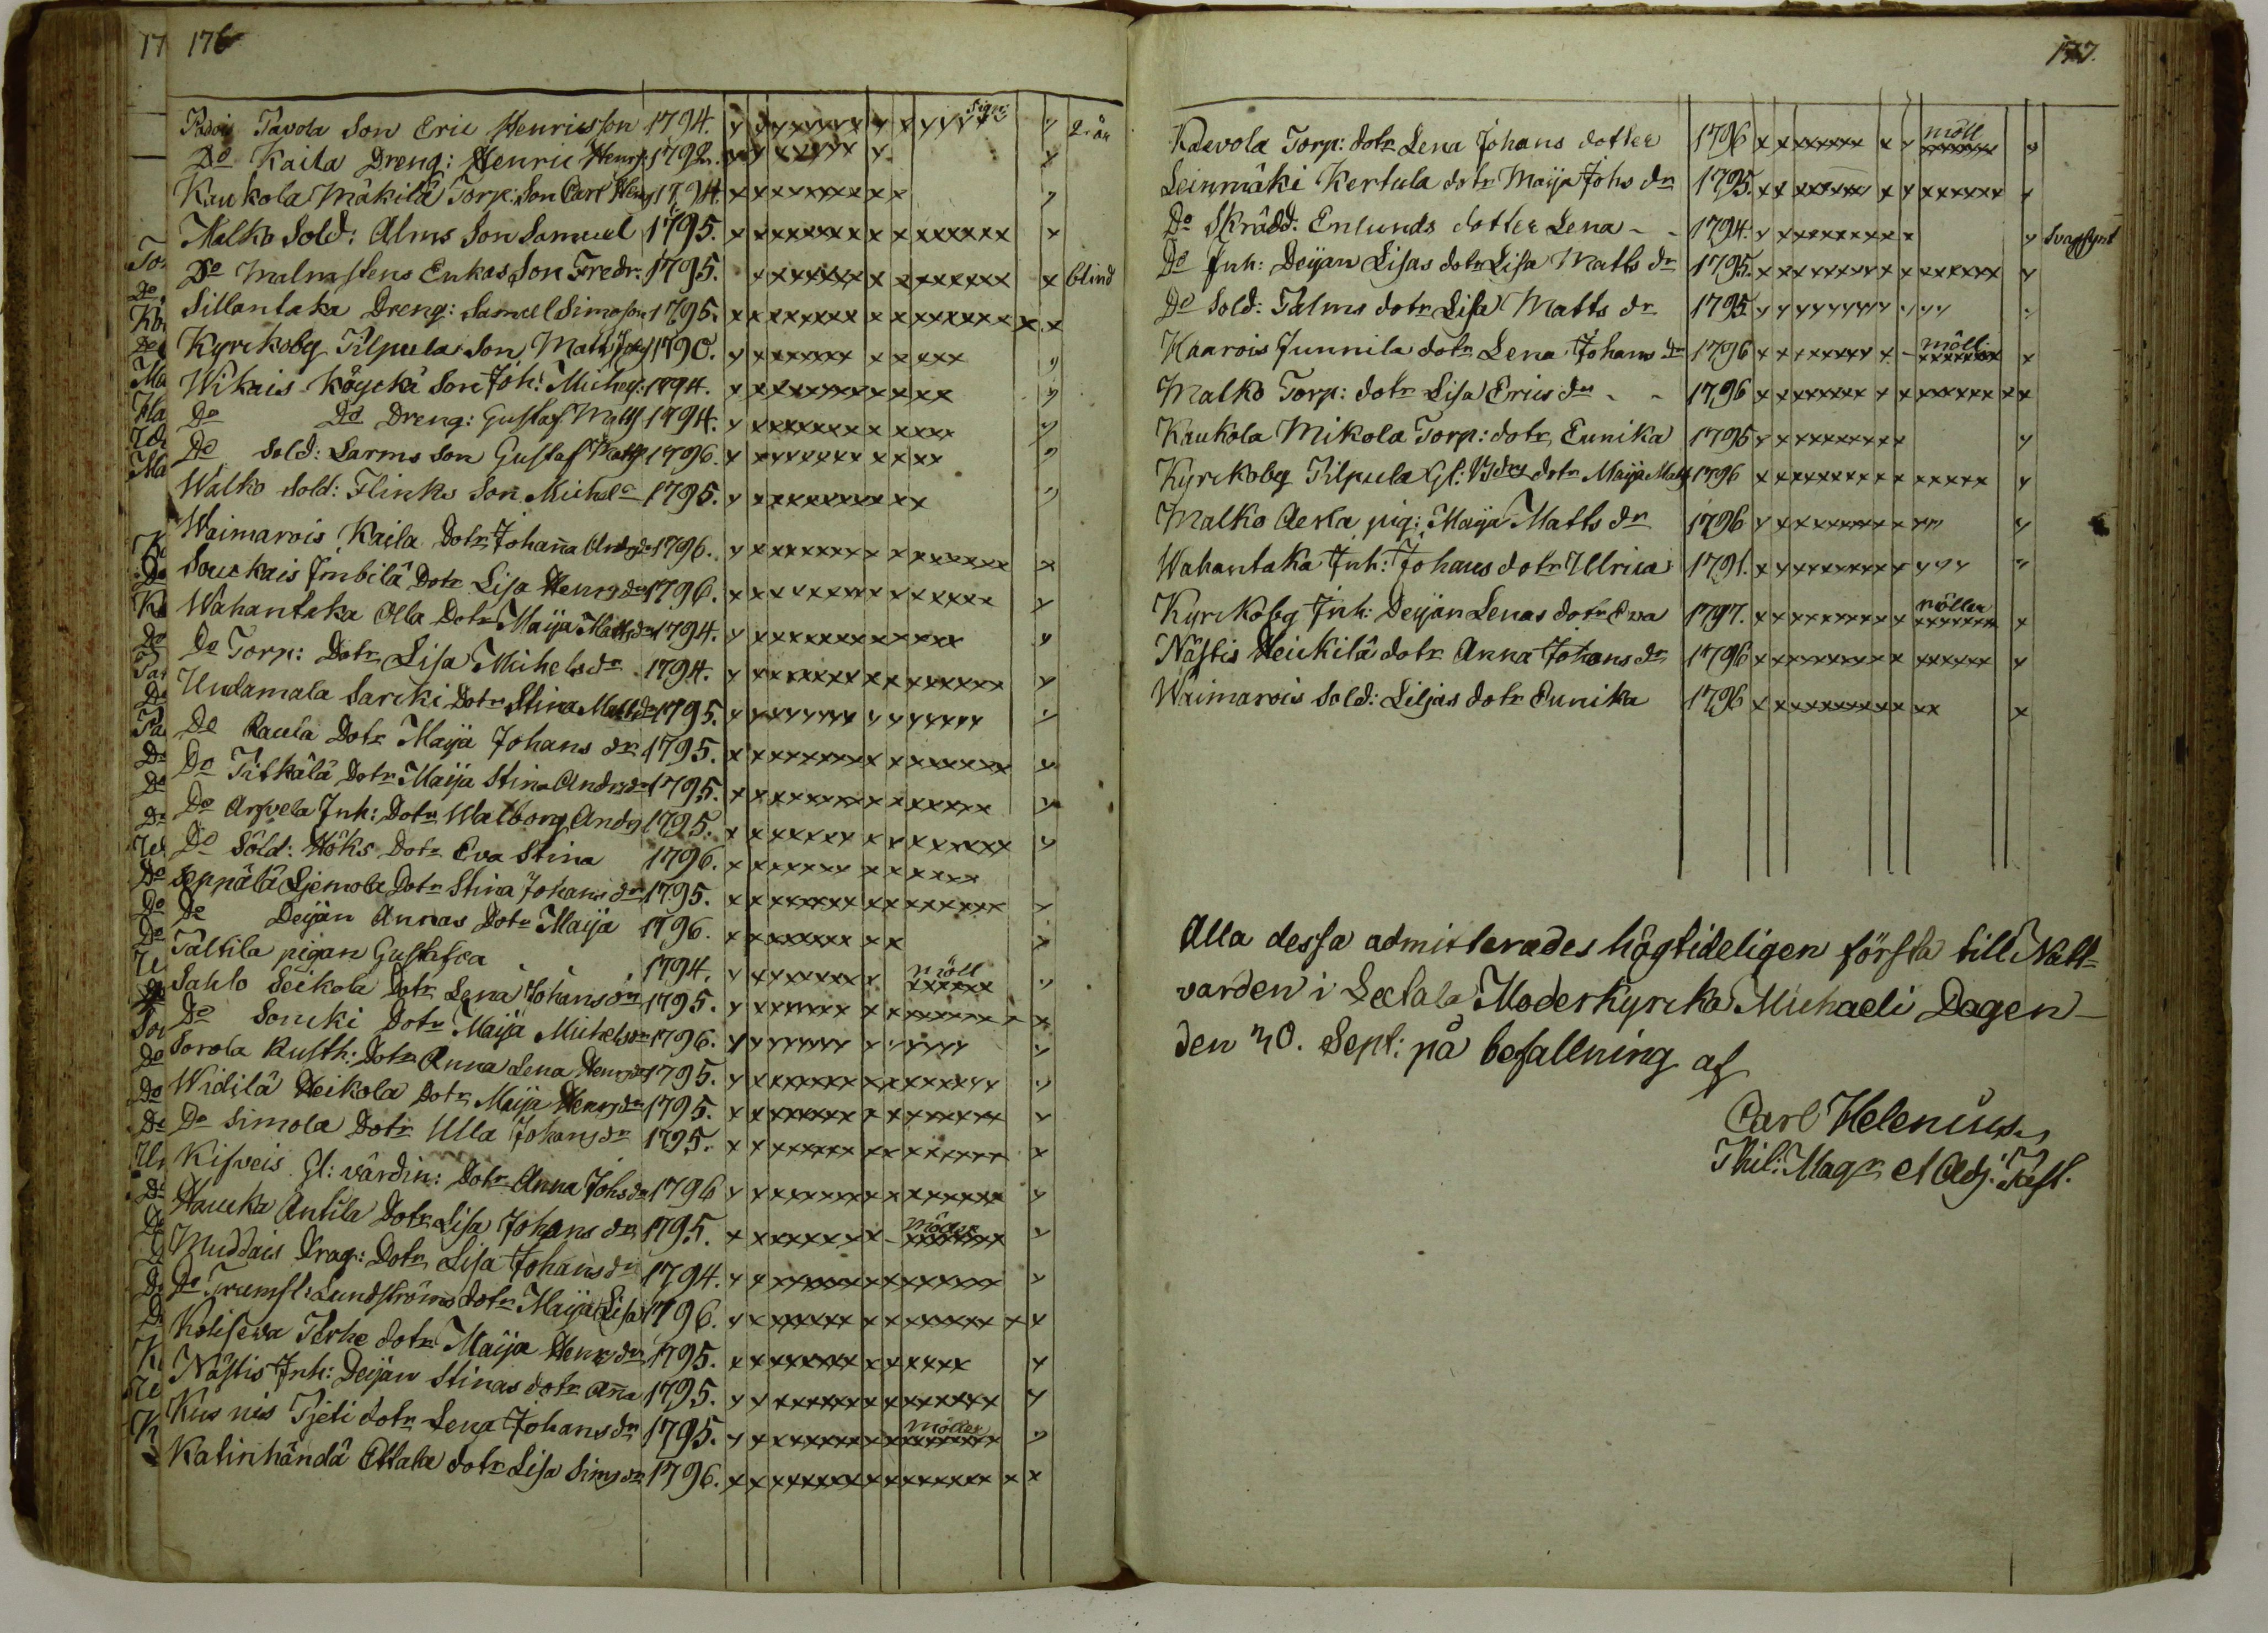 176
Pavola Son Eric Henricsson 1794. 2. år
Do Kaila Dreng: Henric Henrs. 1792.
Kaukola Mäkilä Torp: Son Carl 1794.
Malko Sold: Alms Son Samuel 1795.
Do Malmstens Enkas Son Fredr: 1795. blind
Sillantaka Dreng: Samuel Simonson 1795.
Kyrkoby Pilpula Son 1790.
Wikais Köyckä Son Joh: Michels: 1794.
Do Do Dreng: Gustaf Matts 1794.
Do Sold: Larms Son Gustaf Matts 1796.
Walko Sold: Flinks Son Michel 1795.
Waimarois Kaila Dotr Johaña 1796.
Souckais Dotr Lisa Henrs dr 1796.
Wahantaka Olla Dotr Maija Matts dr 1794.
Do Torp: Dotr Lisa Michels dr 1794.
Undamala Sarcki Dotr Stina Matts dr 1795.
Do Raula Dotr Maija Johans dr 1795.
Do Pitkälä Dotr Maija Stina Anders dr 1795.
Do Arvela Inh: Dotr Walborg Anders 1795.
Do Sold: Höks Dotr Eva Stina 1796.
Seppälä Dotr Stina Johans dr 1795.
Do Deijan Annas Dotr Maija 1796.
Tältilä pigan Gustafva 1794. möll
Sahlo Seikola Dotr Lena Johans dr 1795.
Do Soncki Dotr Maija Michels dr 1796.
Sorola Rusth: Dotr Anna Lena Henrs dr 1795.
Widilä Heikola Dotr Maija Henrs dr 1795.
Do Simola Dotr Ulla Johans dr 1795.
Kisveis Gl: värdin: Dotr Anna Johs dr 1796
Haucka Antila Dotr Lisa Johans dr 1795.
Muddais Drag: Dotr Lisa Johans dr 1794.
Do Lundströms Dotr Maija Lisa 1796.
Dotr Maija Henrs dr 1795.
Nästis Inh: Deijan Stinas dotr Aña 1795.
Kus nis dotr Lena Johans dr 1795. möller
Katinhändä Ettala dotr Lisa Sims dr 1796.
177.
Torp: dotr Lena Johans dotter 1796 möll
Leinmäki Kertula dotr Maija Johs dr 1795.
Do Skrädd: Enlunds dotter Lena - - 1794. Svagsynt
Do Inh: Deijan Lisas dotr Lisa Matts dr 1795.
Do Sold: Palms dotr Lisa Matts dr 1795.
Kaarois Junnila dotr Lena Johans dr 1796 möll
Malko Torp: dotr Lisa Erics dr - - 1796
Kaukola Mikola Torp: dotr Eunika 1795
Kyrkoby Pilpula Gl: dotr Maija Matts 1796
Malko Aerla pig: Maija Matts dr 1796
Wahantaka Inh: Johans dotr Ulrica 1791.
Kyrkoby Inh: Deijan Lenas dotr Eva 1797. möller
Nästis Heickilä dotr Anna Johans dr 1796
Waimarois Sold: Liljas dotr Eunika 1796
Alla dessa admitterades högtideligen första till Natt-
varden i Moderkyrcka Michaeli Dagen
den 30. Sept: på befallning af
Carl Helenius,
Phil: Magr et Adj: Past.